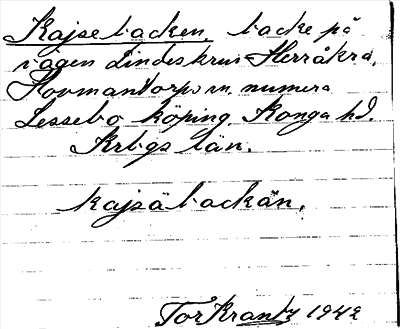 Kajsebacken, backe på
vägen Lindeskruv-Herråkra,
Hovmantorps sn, numera
Lessebo köping, Konga hd.
Krbgs län.
kajsäbackän,
Tor Krantz 1942